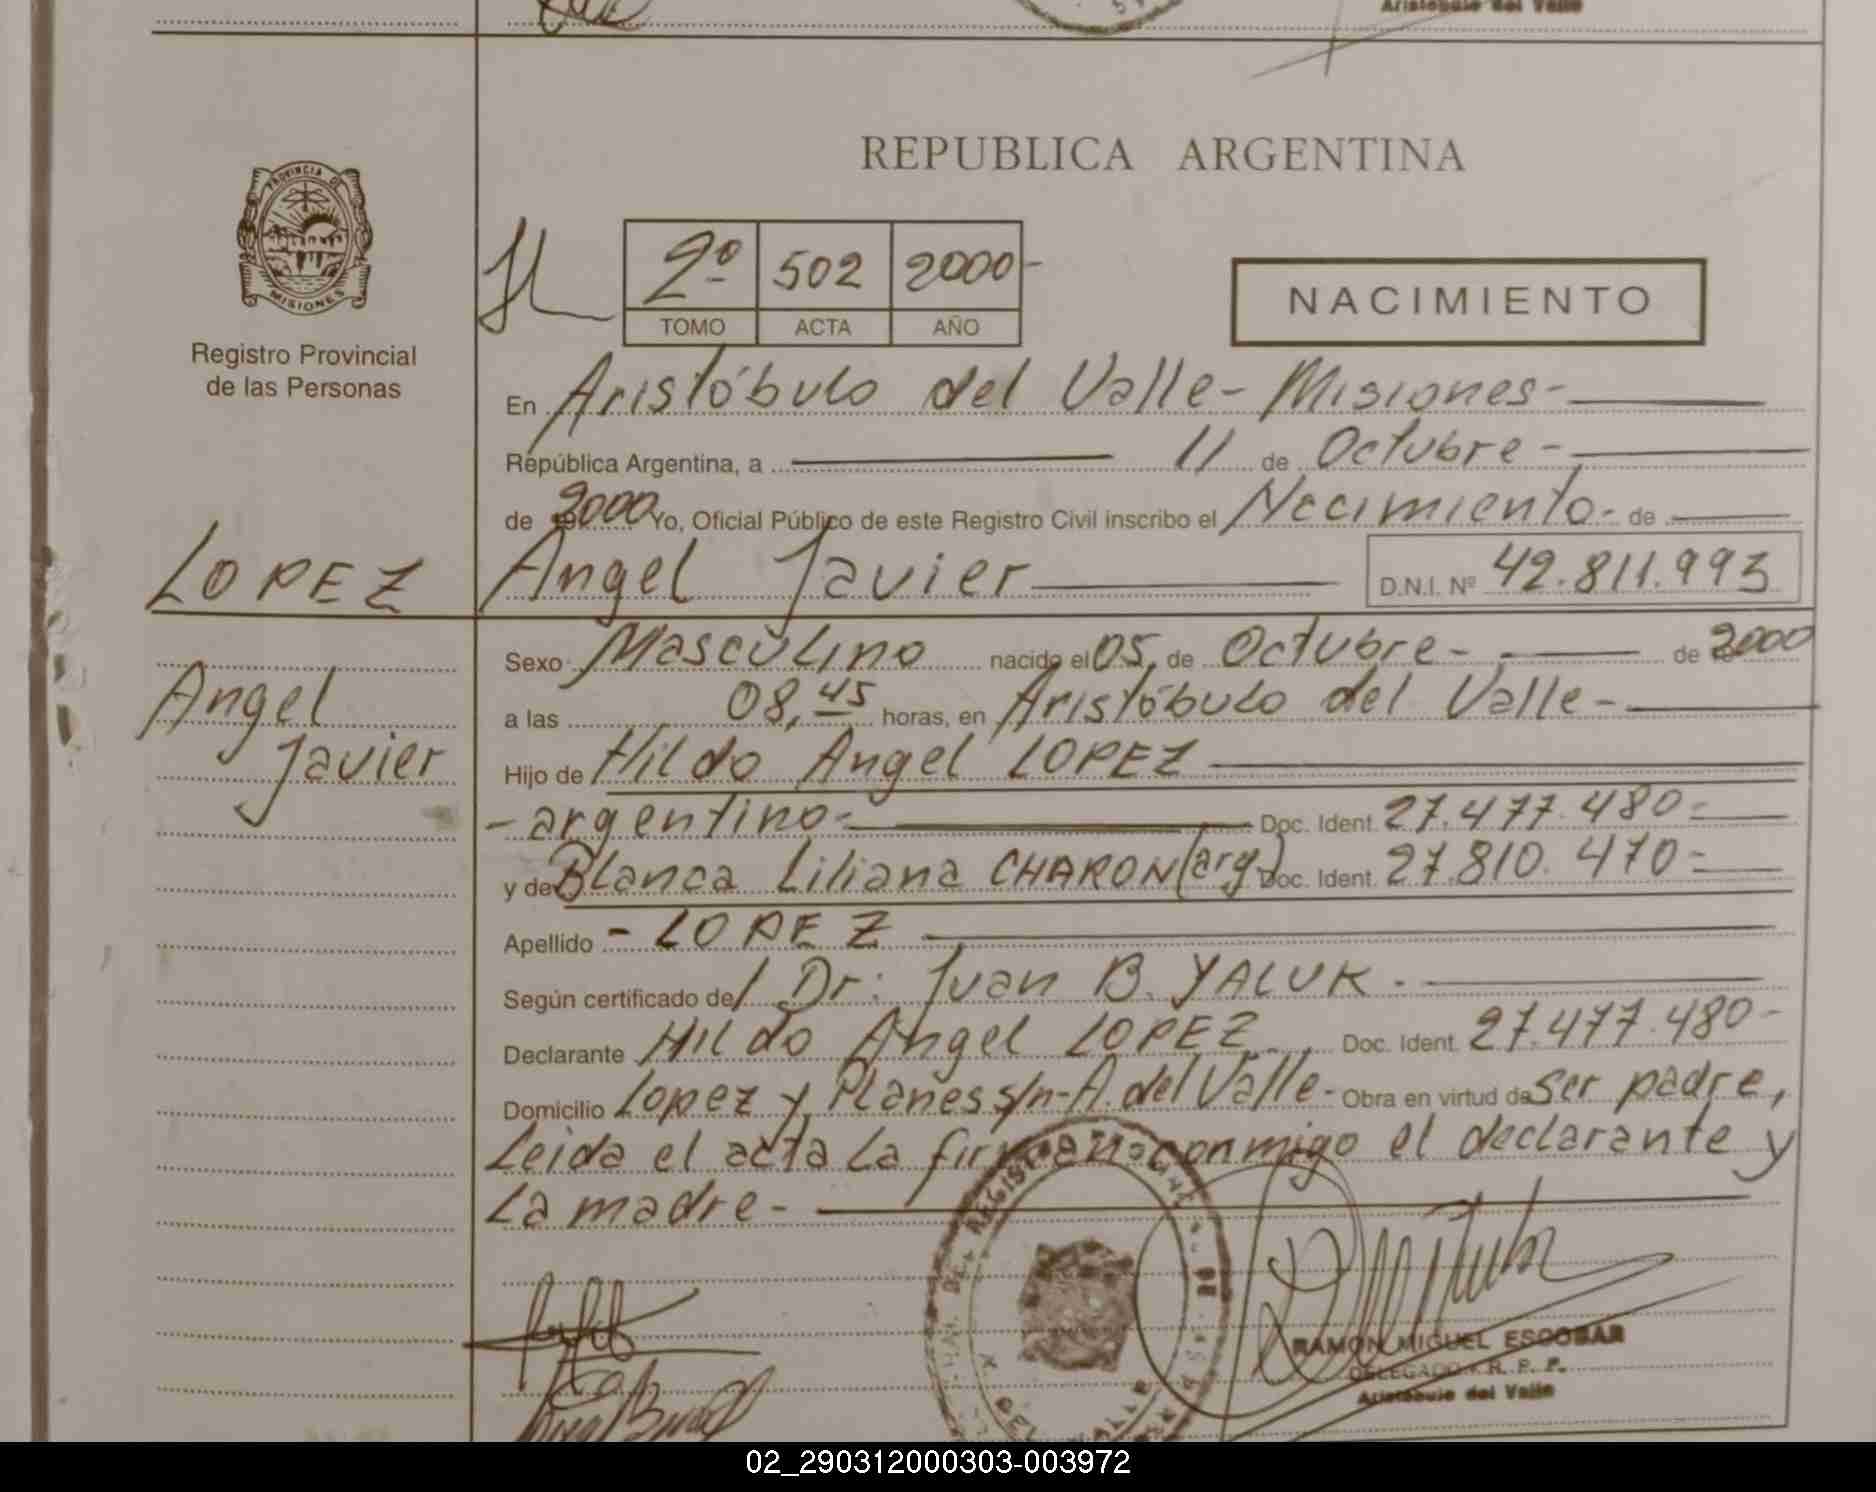 Aristóbulo del Valle
REPUBLICA ARGENTINA
PROVINCIA DE
MISIONES
Registro Provincial
de las Personas
2º 502 2000-
TOMO ACTA AÑO
NACIMIENTO
En Aristóbulo del Valle- Misiones-
República Argentina, a 11 de Octubre-
de 2000 Yo, Oficial Público de este Registro Civil inscribo el Nacimiento- de
LOPEZ Angel Javier D.N.I. Nº 42.811.993
Angel
Javier
Sexo Masculino nacido el 05, de Octubre- de 2000
a las 08,45 horas, en Aristóbulo del Valle-
Hijo de Hildo Angel LOPEZ
- argentino- Doc. Ident. 27.477.480-
y de Blanca Liliana CHARON (arg) Doc. Ident. 27.810.470-
Apellido - LOPEZ
Según certificado de/ Dr: Juan B. YALUK.
Declarante Hildo Angel LOPEZ Doc. Ident. 27.477.480-
Domicilio Lopez y Planes s/n- A. del Valle- Obra en virtud de ser padre,
Leida el acta La firman conmigo el declarante y
La madre-
RAMON MIGUEL ESCOBAR
DELEGADO R. P. P.
Aristóbulo del Valle
02_290312000303-003972